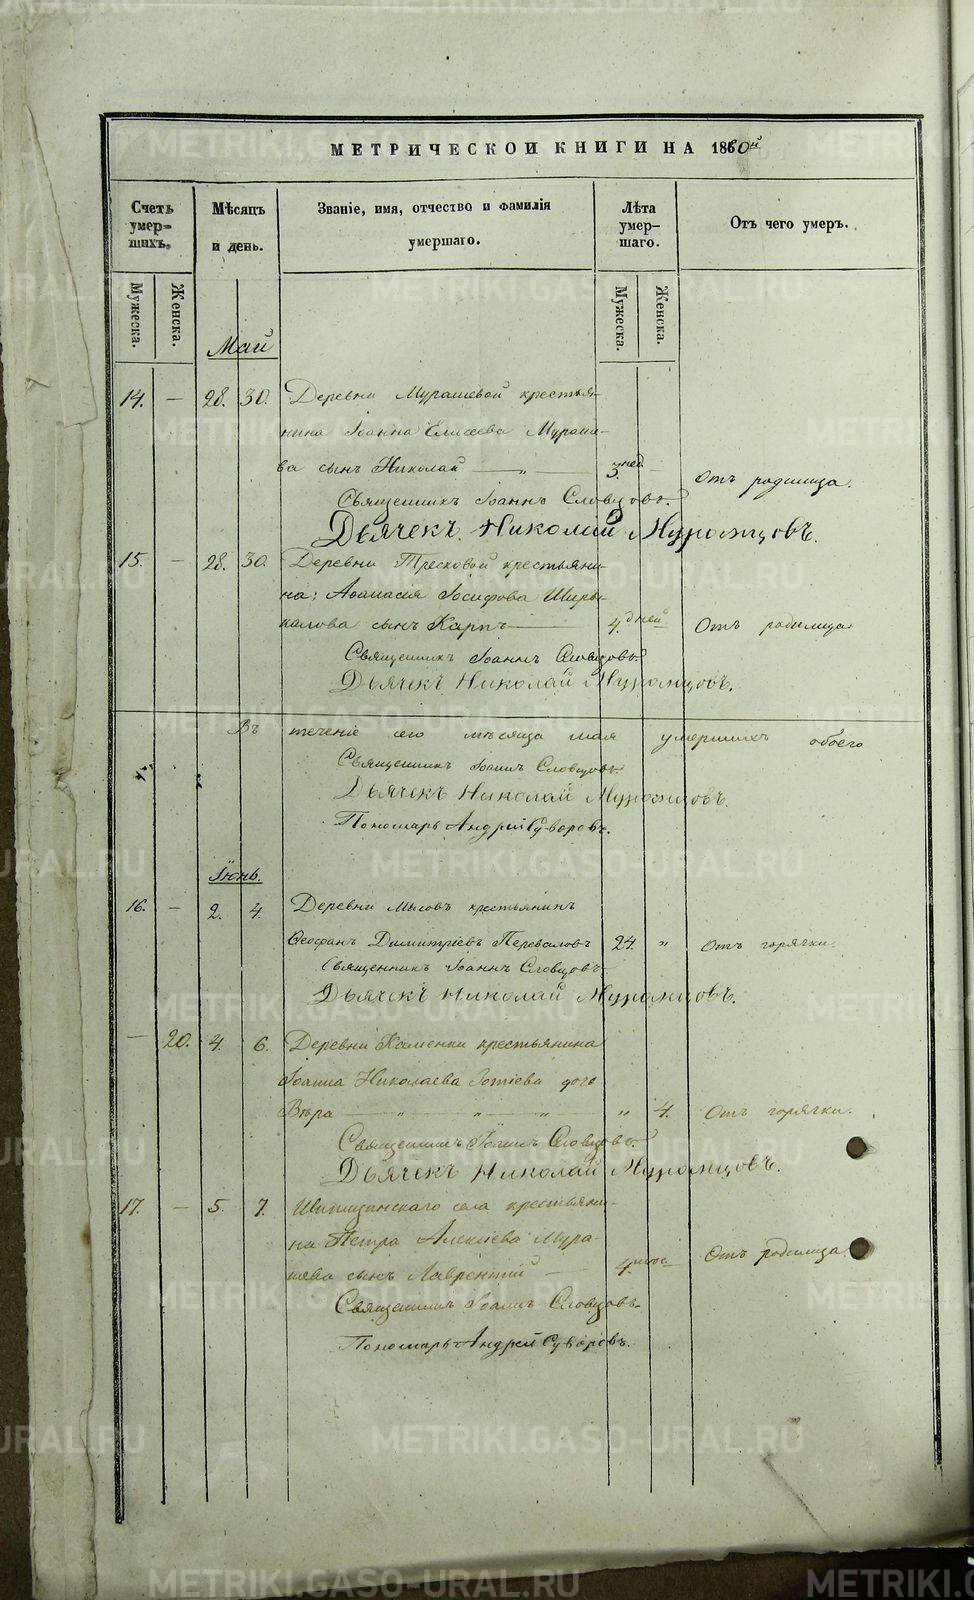 МЕТРИЧЕСКОЙ КНИГИ НА 1860й
Счетъ умер-шихъ.
Мѣсяцъ и день.
Званіе, имя, отчество и фамилія умершаго.
Лѣта умер-шаго.
Отъ чего умеръ.
Мужеска.
Женска.
Мужеска.
Женска.
Май
14. — 28. 30. Деревни Мурашевой крестья-
нина Іоанна Елисеева Мураше-
ва сынъ Николай — „ — 3 дней Отъ родимца.
Священникъ Іоаннъ Словцовъ.
Дьячекъ Николай Муромцовъ.
15. — 28. 30. Деревни Тресковой крестьяни-
на: Аѳанасія Іосифова Ширы-
калова сынъ Карпъ — 4. дней Отъ родимца.
Священникъ Іоаннъ Словцовъ.
Дьячекъ Николай Муромцовъ.
Въ теченіе сего мѣсяца мая умершихъ обоего
Священникъ Іоаннъ Словцовъ.
Дьячекъ Николай Муромцовъ.
Пономарь Андрей Суворовъ.
Іюнь.
16. — 2. 4. Деревни Мысовъ крестьянинъ
Ѳеофанъ Димитріевъ Переваловъ 24. „ Отъ горячки.
Священникъ Іоаннъ Словцовъ
Дьячекъ Николай Муромцовъ.
— 20. 4. 6. Деревни Каменки крестьянина
Іоанна Николаева Зотіева дочь
Вѣра — „ — „ — „ — „ 4. Отъ горячки.
Священникъ Іоаннъ Словцовъ.
Дьячекъ Николай Муромцовъ.
17. — 5. 7. Шипицинскаго села крестьяни-
на Петра Алексіева Мура-
шева сынъ Лаврентій — 4. Отъ родимца.
Священникъ Іоаннъ Словцовъ.
Пономарь Андрей Суворовъ.
METRIKI.GASO-URAL.RU